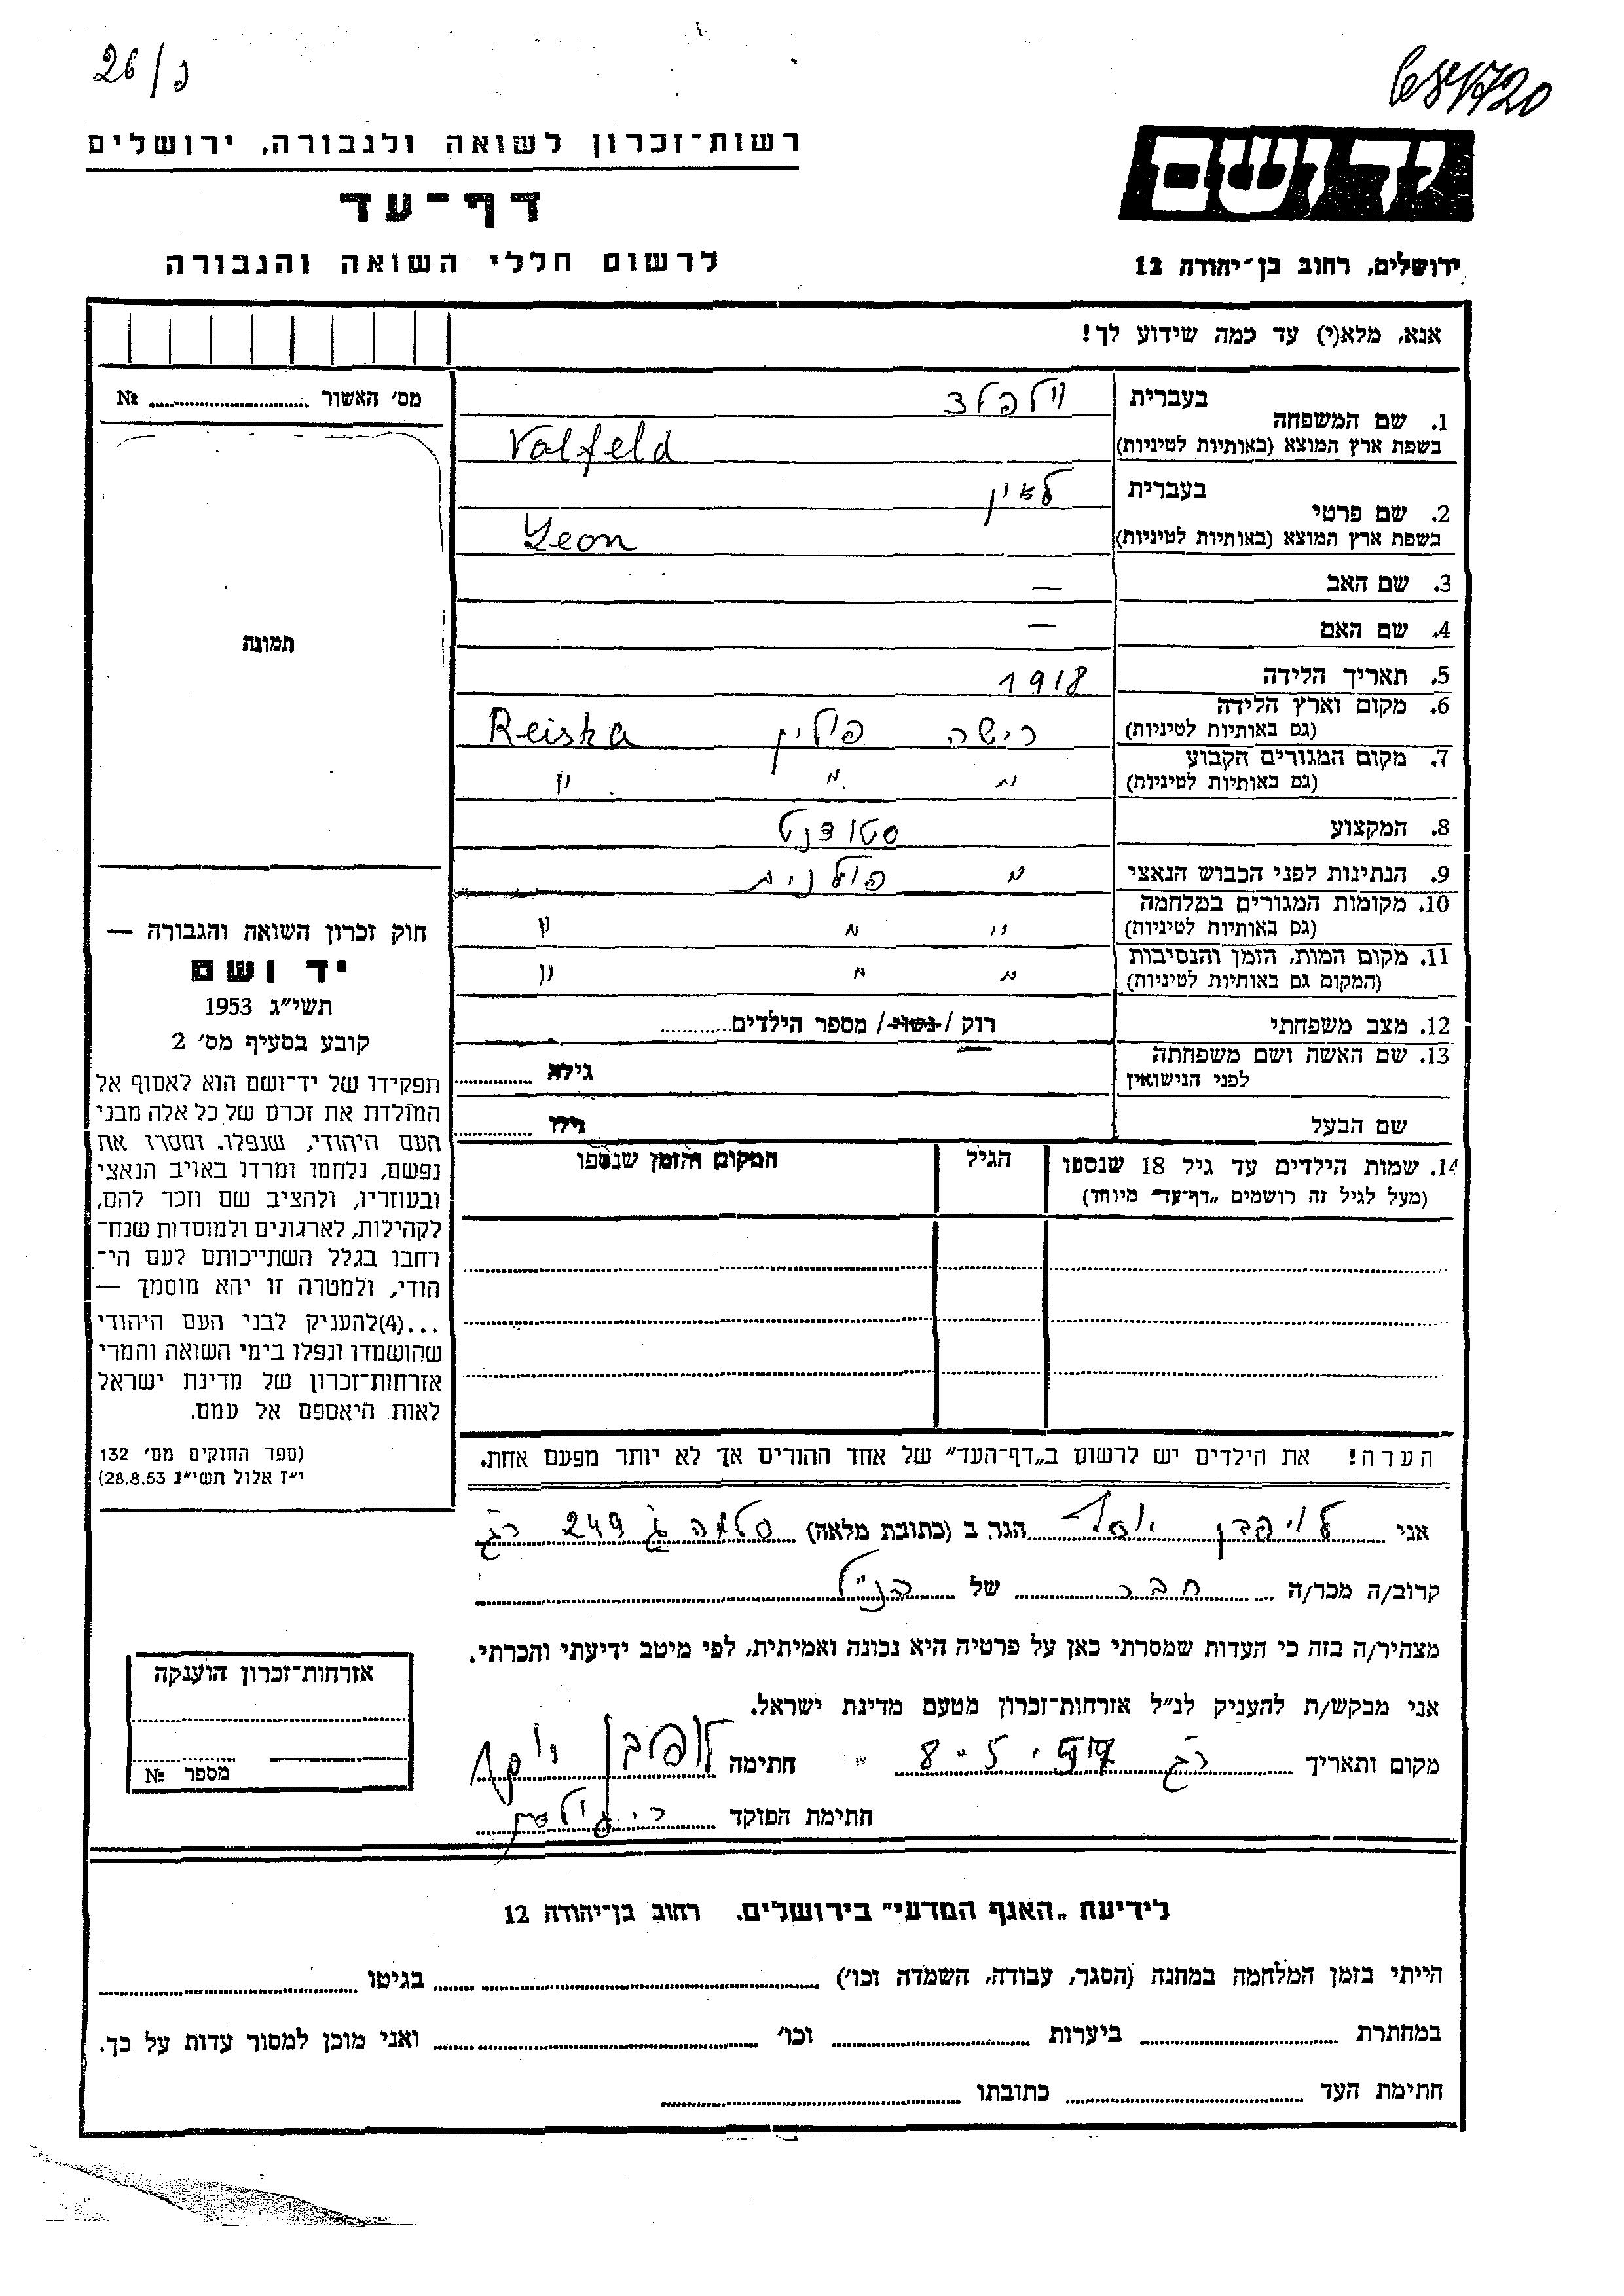 26/נ
681720
רשות־זכרון לשואה ולגבורה, ירושלים
דף־עד
לרשום חללי השואה והגבורה
יד ושם
ירושלים, רחוב בן־יהודה 12
אנא, מלא(י) עד כמה שידוע לך!
מס׳ האשור № 
1. שם המשפחה
בעברית ולפלד
בשפת ארץ המוצא (באותיות לטיניות) Valfeld
2. שם פרטי
בעברית לאון
בשפת ארץ המוצא (באותיות לטיניות) Leon
3. שם האב —
4. שם האם —
5. תאריך הלידה 1918
6. מקום וארץ הלידה רישה פולין Reiska
(גם באותיות לטיניות)
7. מקום המגורים הקבוע " " "
(גם באותיות לטיניות)
8. המקצוע סטודנט
9. הנתינות לפני הכבוש הנאצי " פולנית
10. מקומות המגורים במלחמה " " "
(גם באותיות לטיניות)
11. מקום המות, הזמן והנסיבות " " "
(המקום גם באותיות לטיניות)
12. מצב משפחתי רוק / נשוי / מספר הילדים
13. שם האשה ושם משפחתה
לפני הנישואין גילה
שם הבעל גילו
14. שמות הילדים עד גיל 18 שנספו
(מעל לגיל זה רושמים „דף־עד״ מיוחד)
הגיל
המקום והזמן שנספו
תמונה
חוק זכרון השואה והגבורה —
יד ושם
תשי״ג 1953
קובע בסעיף מס׳ 2
תפקידו של יד־ושם הוא לאסוף אל
המולדת את זכרם של כל אלה מבני
העם היהודי, שנפלו, ומסרו את
נפשם, נלחמו ומרדו באויב הנאצי
ובעוזריו, ולהציב שם וזכר להם,
לקהילות, לארגונים ולמוסדות שנח־
רחבו בגלל השתייכותם לעם הי־
הודי, ולמטרה זו יהא מוסמך —
...(4)להעניק לבני העם היהודי
שהושמדו ונפלו בימי השואה והמרי
אזרחות־זכרון של מדינת ישראל
לאות היאספם אל עמם.
(ספר החוקים מס׳ 132
י״ז אלול תשי״ג 28.8.53)
הערה! את הילדים יש לרשום ב„דף־העד״ של אחד ההורים אך לא יותר מפעם אחת.
אני יוסף הגר ב (כתובת מלאה) סלמה ג 249 רג
קרוב/ה מכר/ה חבר של הנ״ל
מצהיר/ה בזה כי העדות שמסרתי כאן על פרטיה היא נכונה ואמיתית, לפי מיטב ידיעתי והכרתי.
אני מבקש/ת להעניק לנ״ל אזרחות־זכרון מטעם מדינת ישראל.
מקום ותאריך רג 8.5. חתימה יוסף
חתימת הפוקד
אזרחות־זכרון הוענקה
מספר №
לידיעת „האגף המדעי״ בירושלים, רחוב בן־יהודה 12
הייתי בזמן המלחמה במחנה (הסגר, עבודה, השמדה וכו׳) בגיטו
במחתרת ביערות וכו׳ ואני מוכן למסור עדות על כך.
חתימת העד כתובתו